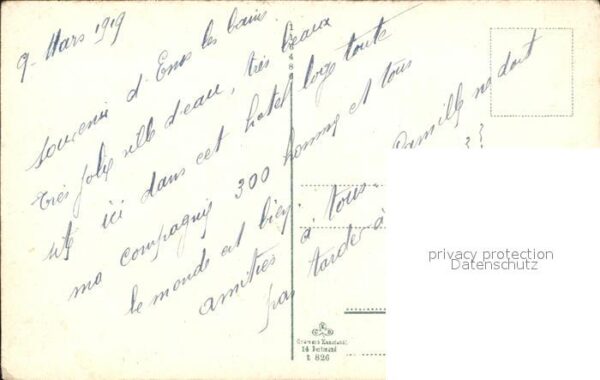 9 Mars 1919
souvenir d'Ems les bains.
très jolie ville d'eau, très beaux
site ici dans cet hotel loge toute
ma compagnie 300 homme et tous
le monde est bien.
amitiés à tous. famille ne doit
pas tarder à ??
486
privacy protection
Datenschutz
14 Dortmund
t 826